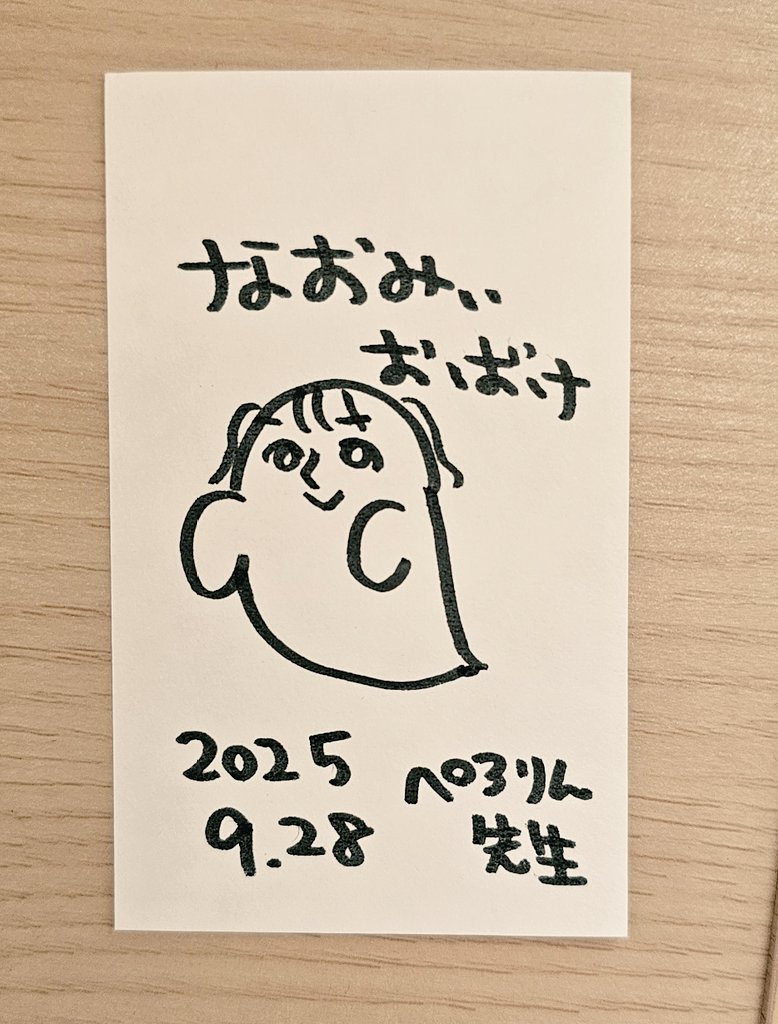 なおみぃ
おばけ
2025
9.28
ぺろりん
先生